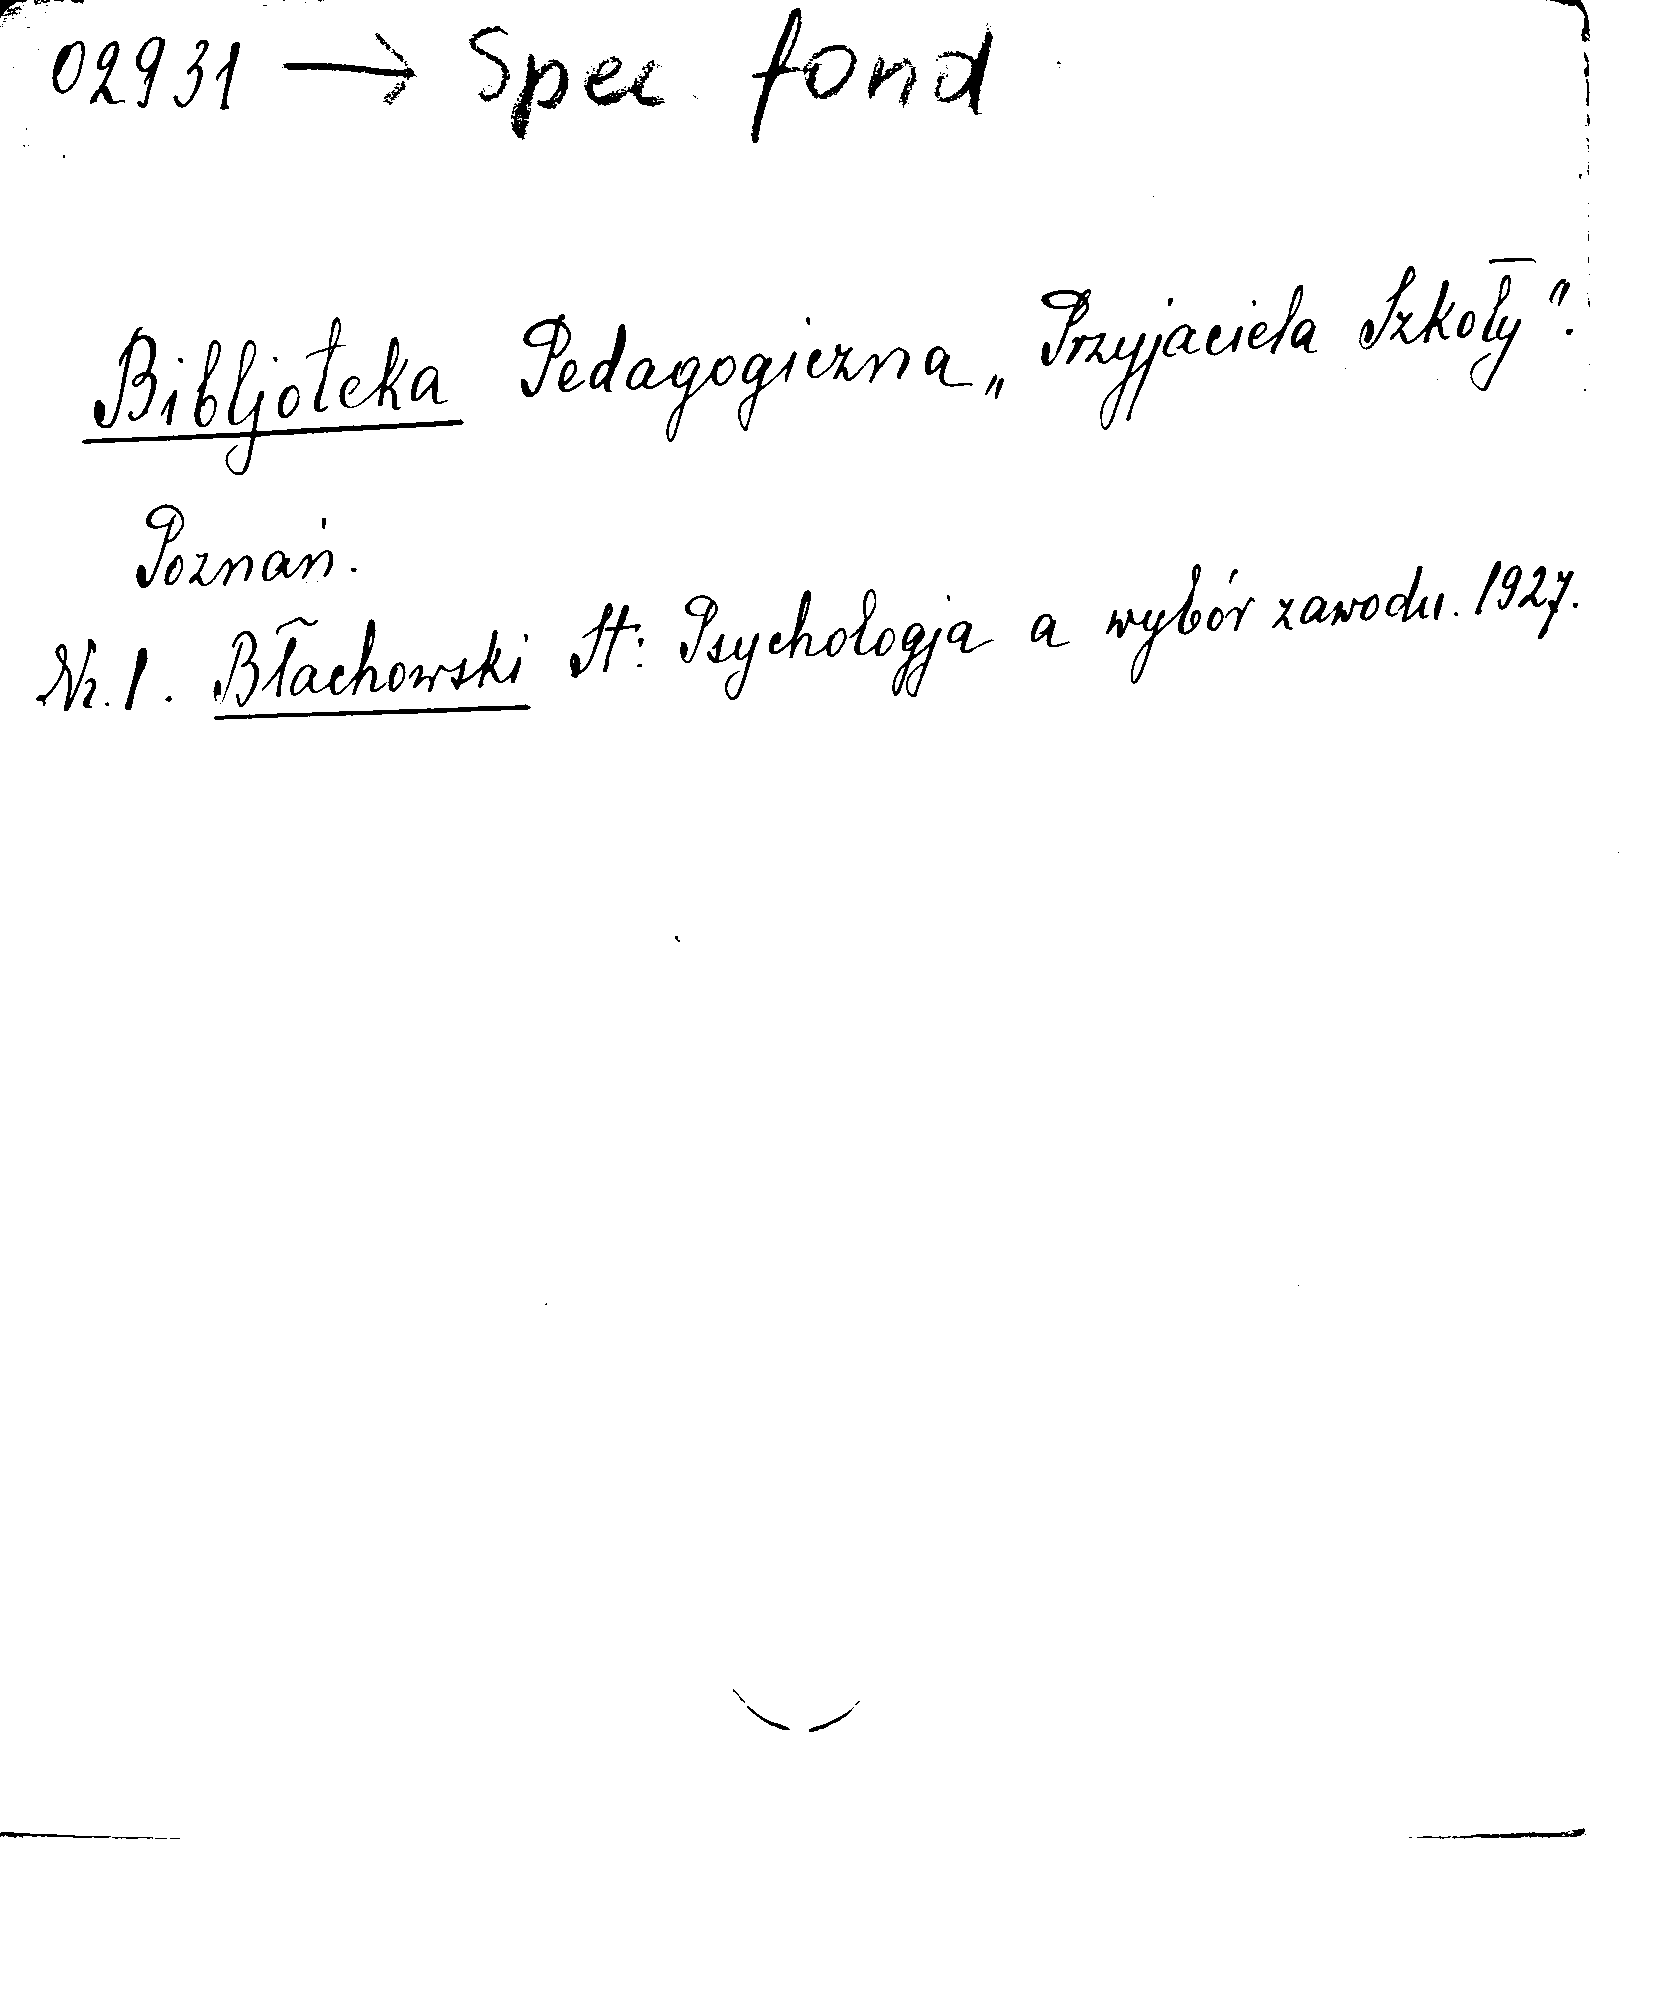 02931 → Spec. fond
Bibljoteka Pedagogiczna „Przyjaciela Szkoły".
Poznań.
Nr. 1. Błachowski St: Psychologja a wybór zawodu. 1927.